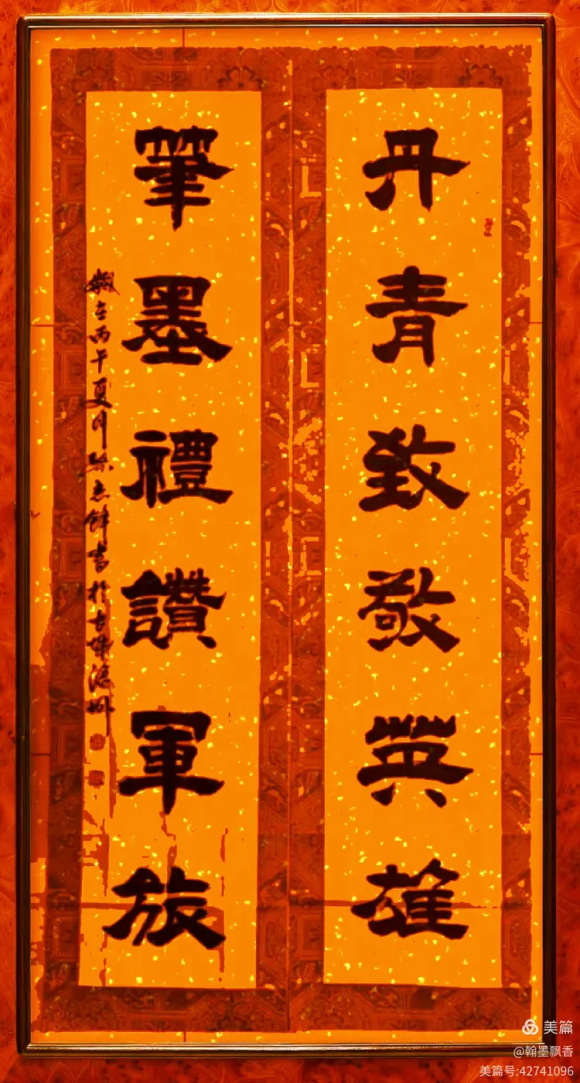 丹青致敬英雄
筆墨禮讚軍旅
歲在丙午夏月
書於古
美篇
@翰墨飘香
美篇号:42741096